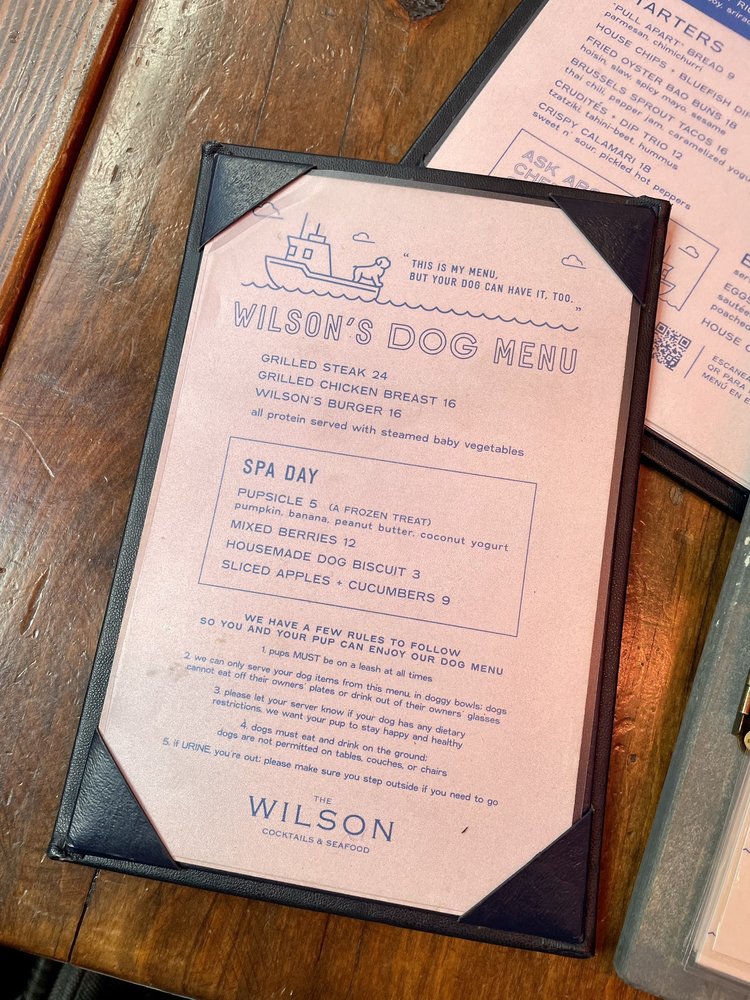 “THIS IS MY MENU,
BUT YOUR DOG CAN HAVE IT, TOO.”
WILSON'S DOG MENU
GRILLED STEAK 24
GRILLED CHICKEN BREAST 16
WILSON'S BURGER 16
all protein served with steamed baby vegetables
SPA DAY
PUPSICLE 5 (A FROZEN TREAT)
pumpkin, banana, peanut butter, coconut yogurt
MIXED BERRIES 12
HOUSEMADE DOG BISCUIT 3
SLICED APPLES + CUCUMBERS 9
WE HAVE A FEW RULES TO FOLLOW
SO YOU AND YOUR PUP CAN ENJOY OUR DOG MENU
1. pups MUST be on a leash at all times
2. we can only serve your dog items from this menu, in doggy bowls; dogs
cannot eat off their owners' plates or drink out of their owners' glasses
3. please let your server know if your dog has any dietary
restrictions, we want your pup to stay happy and healthy
4. dogs must eat and drink on the ground;
dogs are not permitted on tables, couches, or chairs
5. if URINE, you're out; please make sure you step outside if you need to go
THE
WILSON
COCKTAILS & SEAFOOD
TARTERS
"PULL APART" BREAD 9
parmesan, chimichurri
HOUSE CHIPS + BLUEFISH
FRIED OYSTER BAO BUNS 18
hoisin, slaw, spicy mayo, sesame
BRUSSELS SPROUT TACOS 16
thai chili, pepper jam, caramelized
CRUDITÉS + DIP TRIO 12
tzatziki, tahini-beet, hummus
CRISPY CALAMARI 18
sweet n' sour, pickled hot peppers
ASK
HOUSE
ESCANEA
OR PARA
MENÚ EN